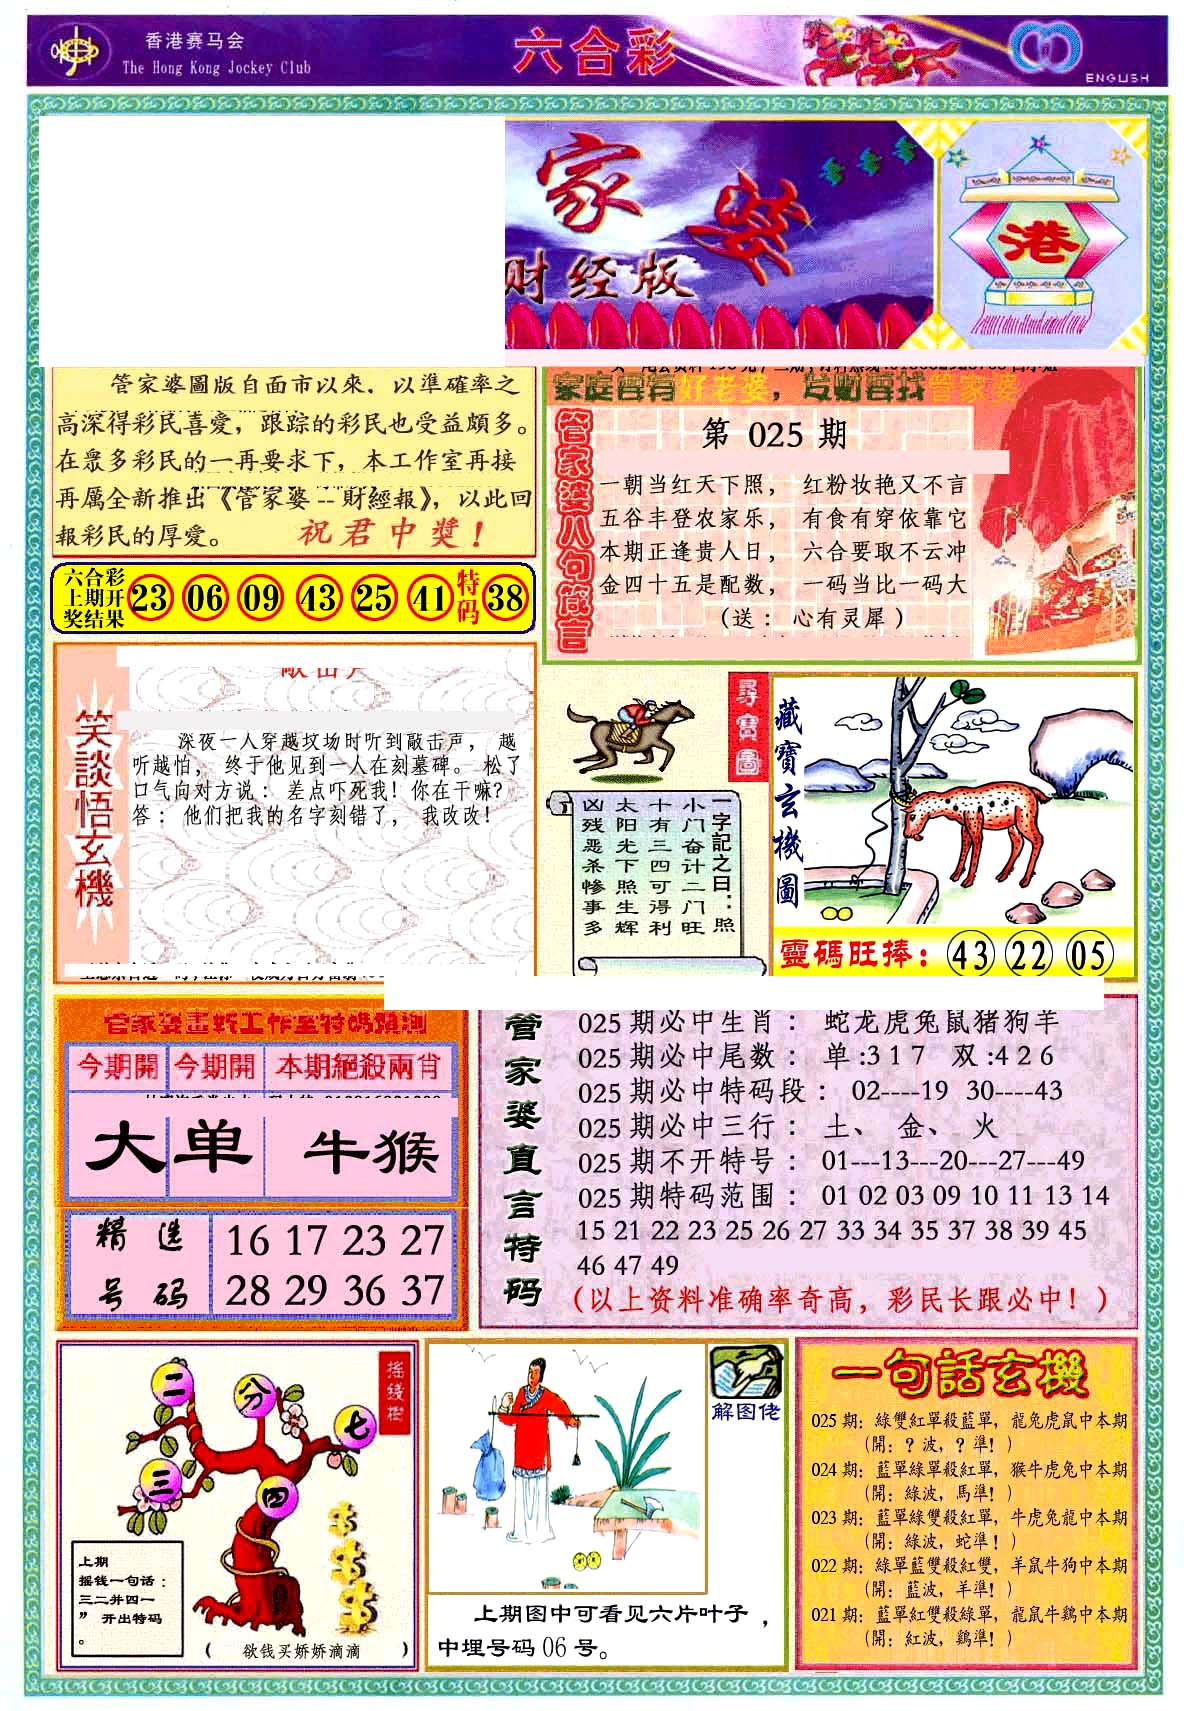 香港赛马会
The Hong Kong Jockey Club
六合彩
ENGLISH
家婆
财经版
港
管家婆圖版自面市以來﹐以準確率之
高深得彩民喜愛，跟踪的彩民也受益頗多。
在眾多彩民的一再要求下，本工作室再接
再厲全新推出《管家婆--財經報》，以此回
報彩民的厚愛。 祝君中獎！
六合彩
上期开
奖结果
23 06 09 43 25 41 特码 38
家庭需有好老婆，发财需找管家婆
管家婆八句箴言
第 025 期
一朝当红天下照， 红粉妆艳又不言
五谷丰登农家乐， 有食有穿依靠它
本期正逢贵人日， 六合要取不云冲
金四十五是配数， 一码当比一码大
(送：心有灵犀)
笑談悟玄機
深夜一人穿越坟场时听到敲击声， 越
听越怕， 终于他见到一人在刻墓碑。 松了
口气向对方说： 差点吓死我！你在干嘛？
答： 他们把我的名字刻错了， 我改改！
尋寶圖
一字記之曰：照
小门奋计二门旺
十有三四可得利
太阳光下照生辉
凶残恶杀惨事多
藏寶玄機圖
靈碼旺捧：43 22 05
管家婆畫蝦工作室特碼預測
今期開 今期開 本期絕殺兩肖
大 单 牛猴
精选
号码
16 17 23 27
28 29 36 37
管家婆直言特码
025 期必中生肖： 蛇龙虎兔鼠猪狗羊
025 期必中尾数： 单:3 1 7 双:4 2 6
025 期必中特码段： 02----19 30----43
025 期必中三行： 土、 金、 火
025 期不开特号： 01---13---20---27---49
025 期特码范围： 01 02 03 09 10 11 13 14
15 21 22 23 25 26 27 33 34 35 37 38 39 45
46 47 49
(以上资料准确率奇高，彩民长跟必中！)
摇錢樹
二 分 七
三 四
上期
摇钱一句话：
三二并四一
” 开出特码
。
( 欲钱买娇娇滴滴 )
解图佬
上期图中可看见六片叶子，
中埋号码 06 号。
一句話玄機
025 期：綠雙紅單殺藍單，龍兔虎鼠中本期
(開：？波，？準！)
024 期：藍單綠單殺紅單，猴牛虎兔中本期
(開：綠波，馬準！)
023 期：藍單綠雙殺紅單，牛虎兔龍中本期
(開：綠波，蛇準！)
022 期：綠單藍雙殺紅雙，羊鼠牛狗中本期
(開：藍波，羊準！)
021 期：藍單紅雙殺綠單，龍鼠牛鷄中本期
(開：紅波，鷄準！)